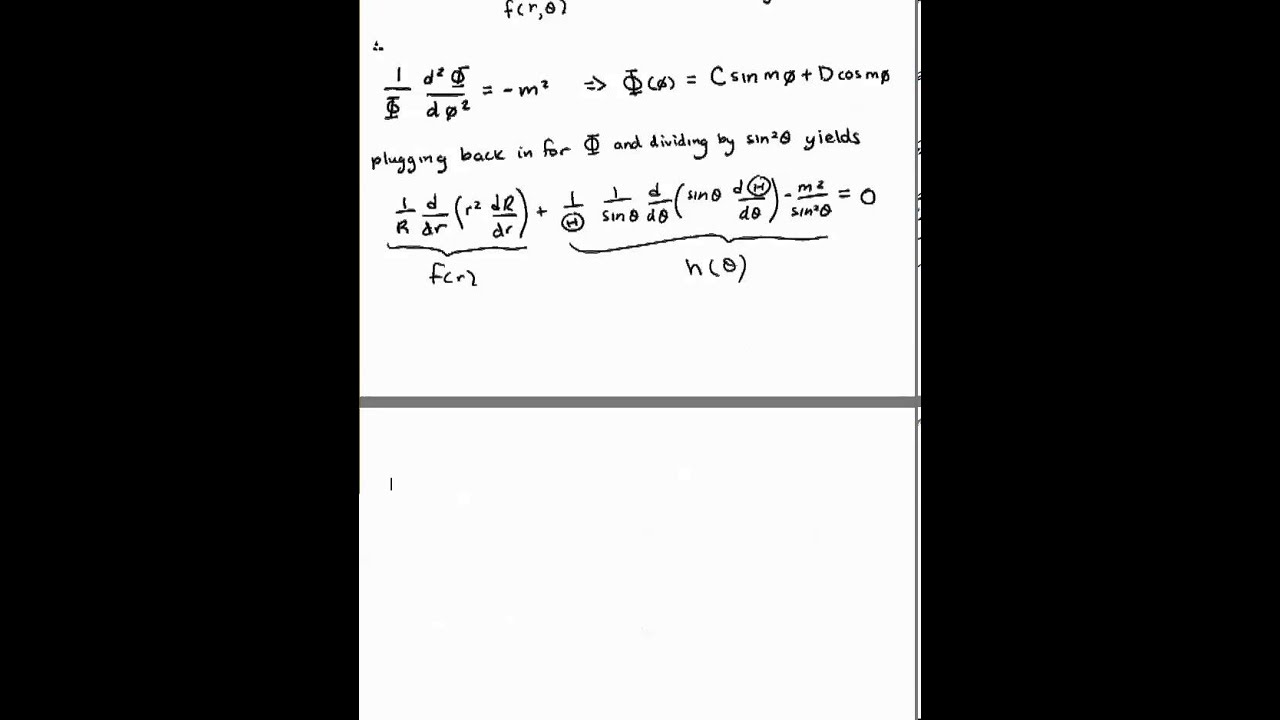 f(r,θ)
∴
1/Φ d²Φ/dø² = -m² => Φ(ø) = C sin mø + D cos mø
plugging back in for Φ and dividing by sin²θ yields
1/R d/dr (r² dR/dr) + 1/Θ 1/sinθ d/dθ (sinθ dΘ/dθ) - m²/sin²θ = 0
f(r) h(θ)